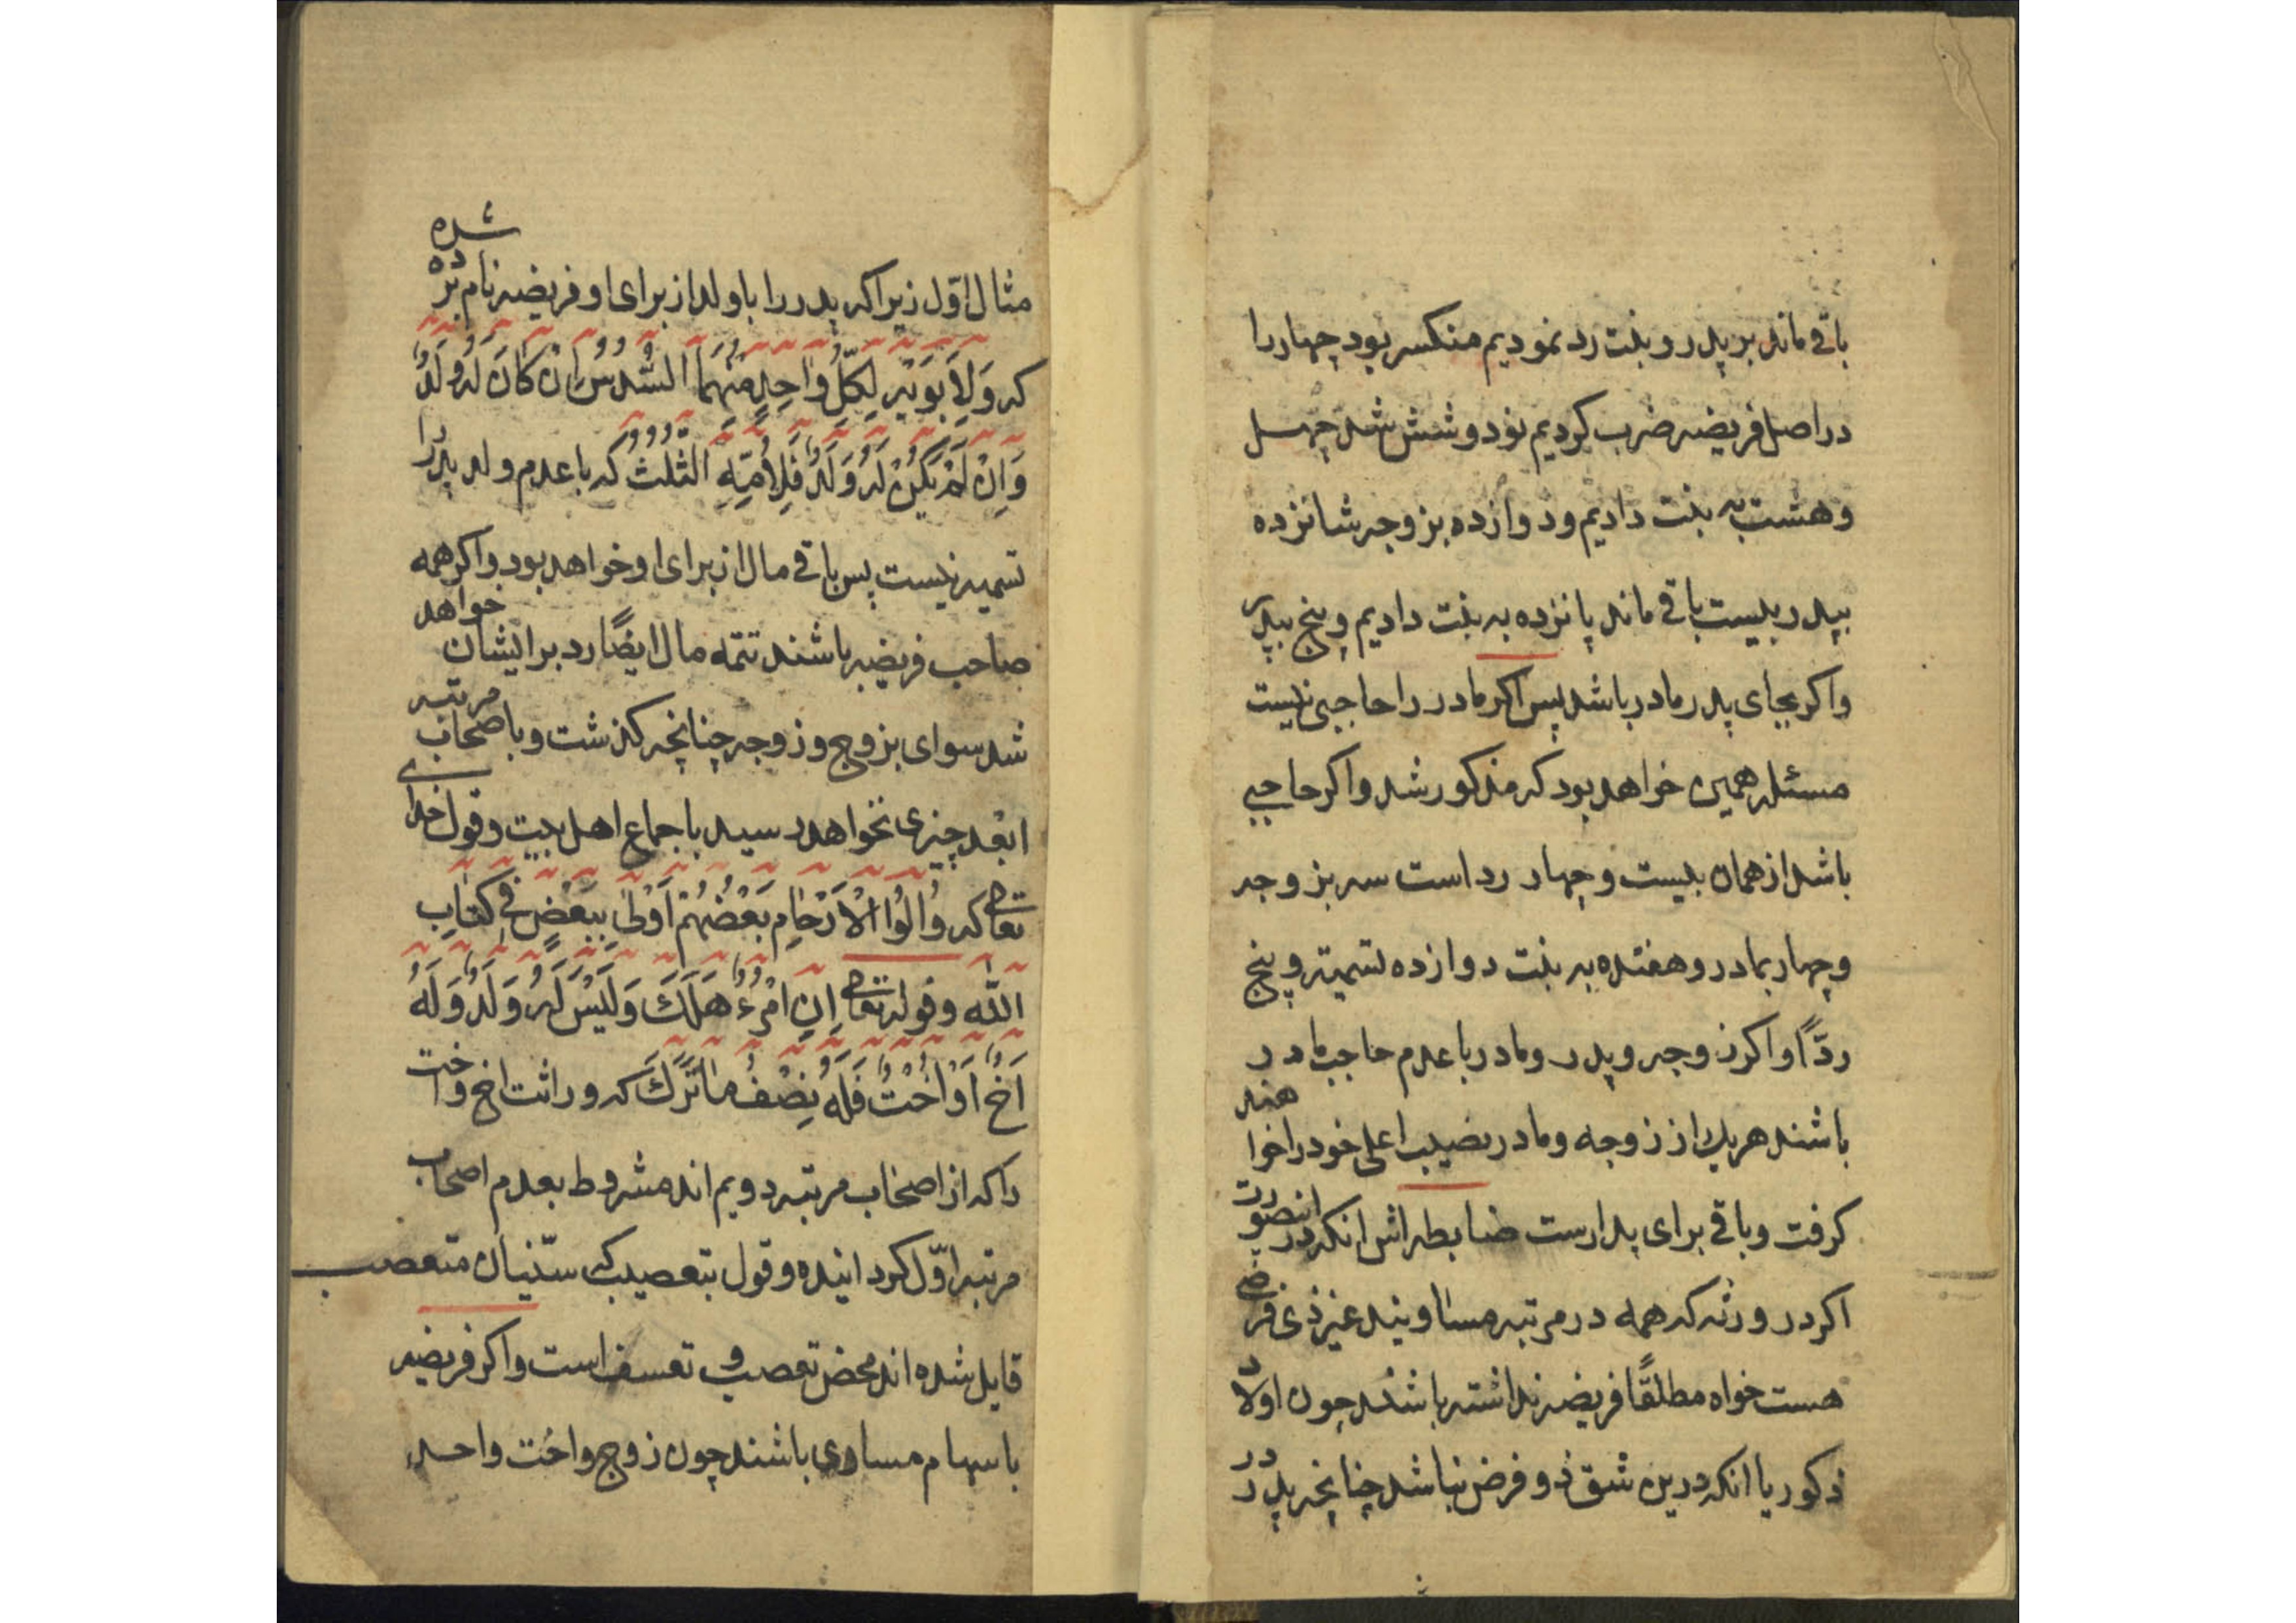 باقی ماند بر پدر و بنت رد نمودیم منکسر بود چهار را
در اصل فریضه ضرب کردیم نود و شش شد چهل
و هشت به بنت دادیم و دوازده بزوجه شانزده
بپدر بیست باقی ماند پانزده به بنت دادیم و پنج بپدر
و اکر بجای پدر مادر باشد پس اکر مادر را حاجبی نیست
مسئله همین خواهد بود که مذکور شد و اکر حاجبی
باشد از همان بیست و چهار رد است سه بزوجه
و چهار بمادر و هفده به بنت دوازده تسمیة و پنج
ردًّا و اکر زوجه و پدر و مادر با عدم حاجب مادر
باشند هریک از زوجه و مادر نصیب اعلی خود را خواهند
کرفت و باقی برای پدر است ضابطه اش انکه در اینصورت
اکر در ورثه که همه در مرتبه مساویند غیر ذی فرضی
هست خواه مطلقًا فریضه نداشته باشند چون اولاد
ذکور یا انکه درین شق ذو فرض نباشد چنانچه پدر در
مثال اوّل زیرا که پدر را با ولد از برای او فریضه نام برده شده
که وَلِأَبَوَیْهِ لِکُلِّ وَاحِدٍ مِنْهُمَا السُّدُسُ اِنْ کَانَ لَهُ وَلَدٌ
وَاِنْ لَمْ یَکُنْ لَهُ وَلَدٌ فَلِاُمِّهِ الثُّلُثُ که با عدم ولد پدر را
تسمیه نیست پس باقی مال از برای او خواهد بود و اکر همه
صاحب فریضه باشند تتمه مال ایضًا رد بر ایشان خواهد
شد سوای بزوج و زوجه چنانچه کذشت و باصحاب مرتبه
ابعد چیزی نخواهد رسید باجماع اهل بیت و قول خدای
تعالی که وَاُولُوا الْاَرْحَامِ بَعْضُهُمْ اَوْلٰی بِبَعْضٍ فِی کِتَابِ
اللّٰهِ و قوله تعالی اِنِ امْرُءٌ هَلَکَ وَلَیْسَ لَهُ وَلَدٌ وَلَهُ
اَخٌ اَوْ اُخْتٌ فَلَهُ نِصْفُ مَا تَرَکَ که وراثت اخ و اخت
را که از اصحاب مرتبه دویم اند مشروط بعدم اصحاب
مرتبه اوّل کردانیده و قول بتعصیب که سنّیان متعصب
قایل شده اند محض تعصب و تعسف است و اکر فریضه
با سهام مساوی باشند چون زوج و اخت واحده